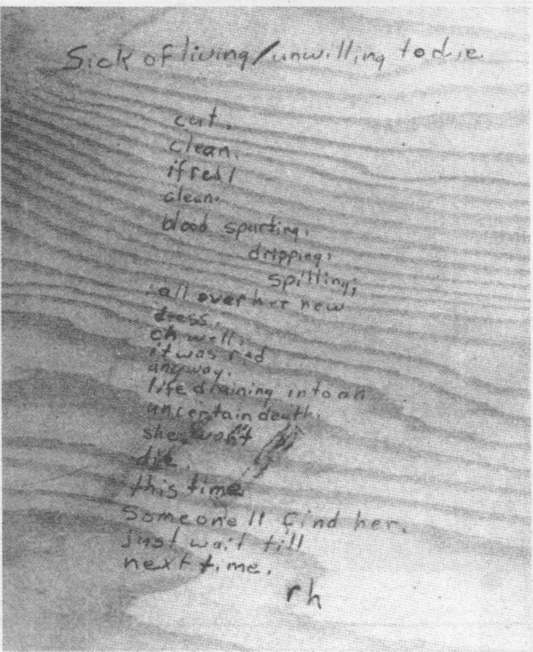 Sick of living/unwilling to die
cut.
clean.
if red /
clean.
blood spurting,
dripping,
spilling;
all over her new
dress.
oh well,
it was red
anyway.
life draining into an
uncertain death.
she won't
die.
this time
Someone'll find her.
just wait till
next time.
rh